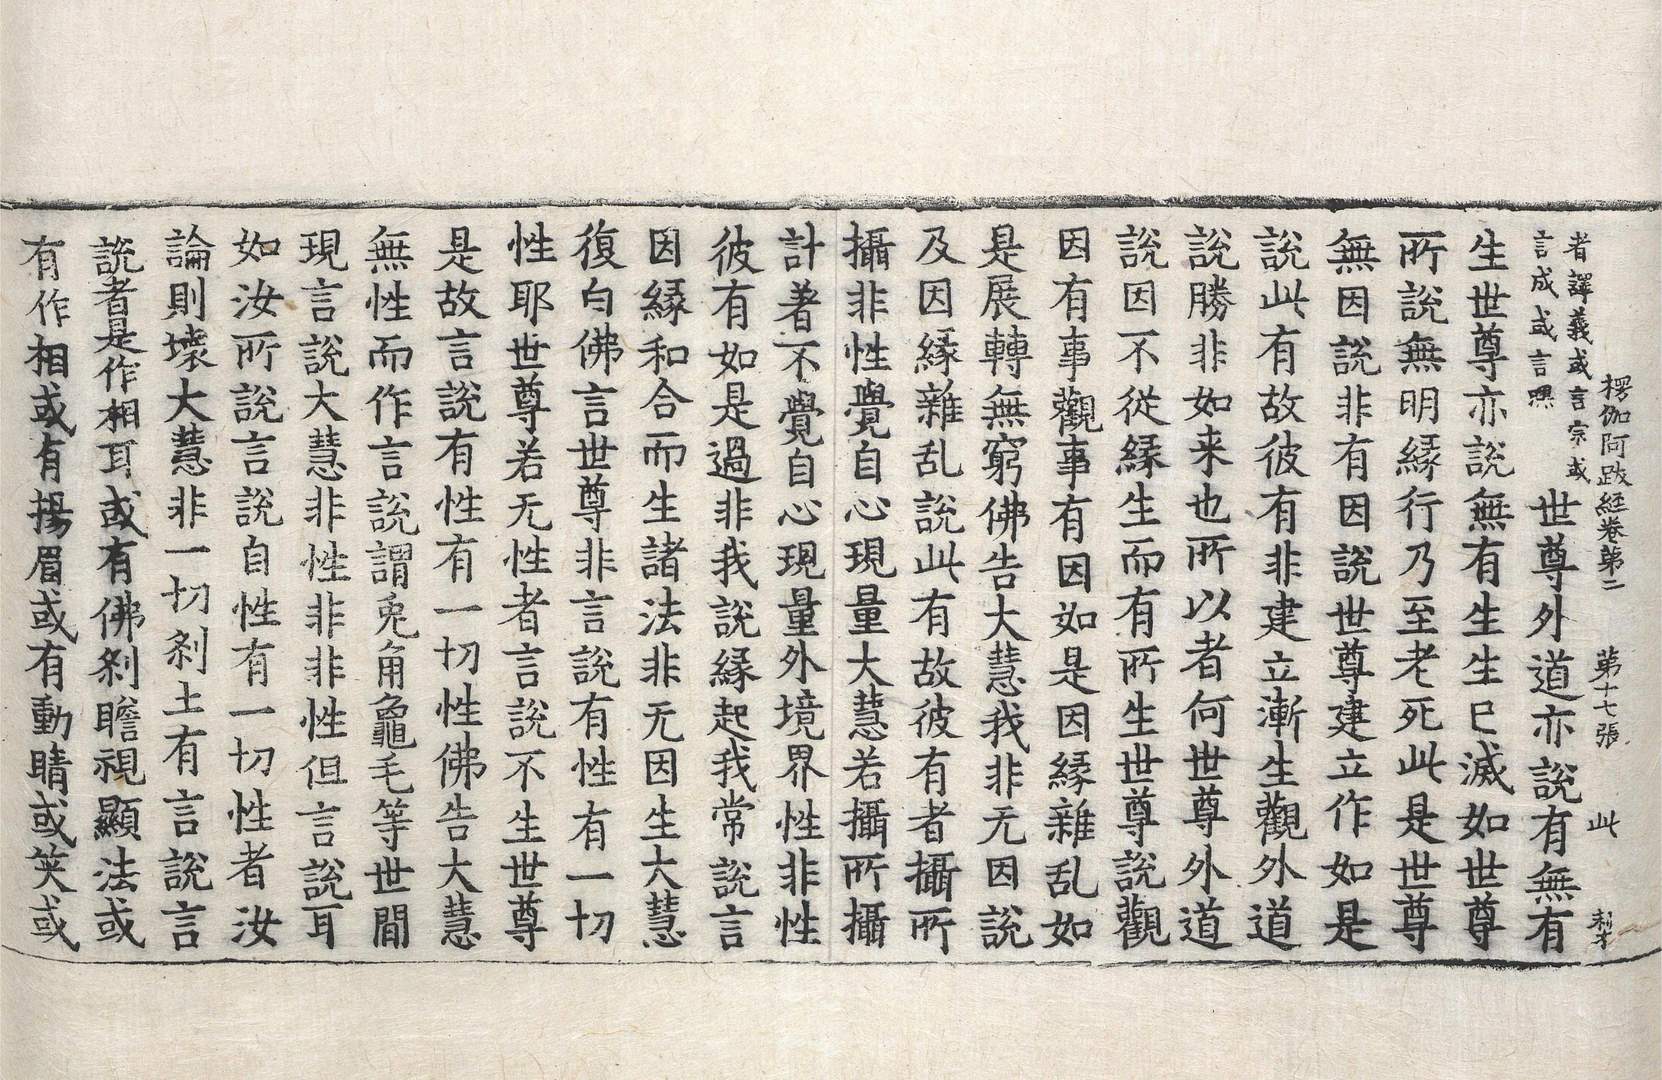 楞伽阿跋経巻第二 第十七張 此
者譯義或言宗或
言成或言嘿
世尊外道亦説有無有
生世尊亦説無有生生已滅如世尊
所説無明縁行乃至老死此是世尊
無因説非有因説世尊建立作如是
説此有故彼有非建立漸生觀外道
説勝非如来也所以者何世尊外道
説因不從縁生而有所生世尊説觀
因有事觀事有因如是因縁雜乱如
是展轉無窮佛告大慧我非无因説
及因縁雜乱説此有故彼有者攝所
攝非性覺自心現量大慧若攝所攝
計著不覺自心現量外境界性非性
彼有如是過非我説縁起我常説言
因縁和合而生諸法非无因生大慧
復白佛言世尊非言説有性有一切
性耶世尊若无性者言説不生世尊
是故言説有性有一切性佛告大慧
無性而作言説謂兎角龜毛等世間
現言説大慧非性非非性但言説耳
如汝所説言説自性有一切性者汝
論則壞大慧非一切刹土有言説言
説者是作相耳或有佛刹瞻視顯法或
有作相或有揚眉或有動睛或笑或